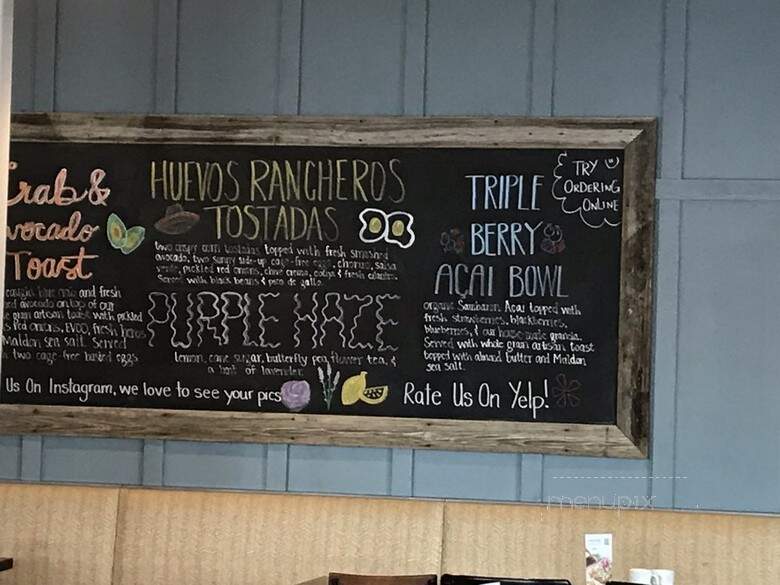 Crab &
Avocado
Toast
caught blue crab and fresh
avocado on top of our
grain artisan toast with pickled
Red onions, EVOO, fresh herbs
Maldon sea salt. Served
two cage-free basted eggs
HUEVOS RANCHEROS
TOSTADAS
two crispy corn tostadas topped with fresh smashed
avocado, two sunny side-up cage-free eggs, chorizo, salsa
verde, pickled red onions, chive crema, cotija & fresh cilantro.
Served with black beans & pico de gallo.
PURPLE HAZE
lemon, cane sugar, butterfly pea flower tea, &
a hint of lavender
TRIPLE
BERRY
AÇAI BOWL
organic Sambazon Acai topped with
fresh strawberries, blackberries,
blueberries, & our house made granola.
Served with whole grain artisan toast
topped with almond butter and Maldon
sea salt.
TRY
ORDERING
ONLINE
Us On Instagram, we love to see your pics
Rate Us On Yelp!
menupix